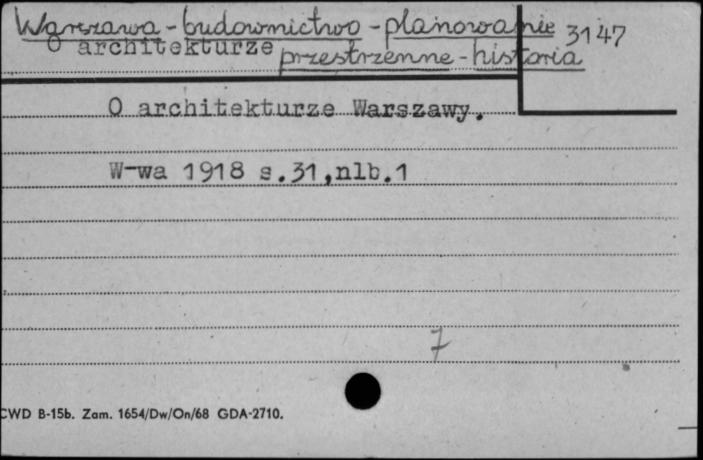 Warszawa - budownictwo - planowanie 3147
O architekturze
przestrzenne - historia
O architekturze Warszawy.
W-wa 1918 s.31,nlb.1
7
CWD B-15b. Zam. 1654/Dw/On/68 GDA-2710.